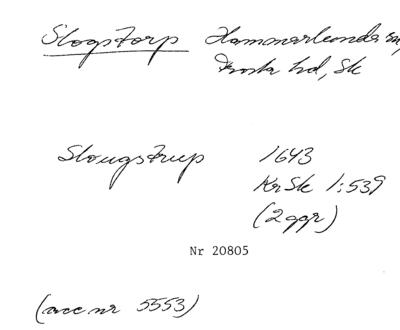 Slogstorp Hammarlunda sn,
Frosta hd, Sk
Slougstrup 1643
KrSk 1:539
(2 ggr)
Nr 20805
(acc nr 5553)